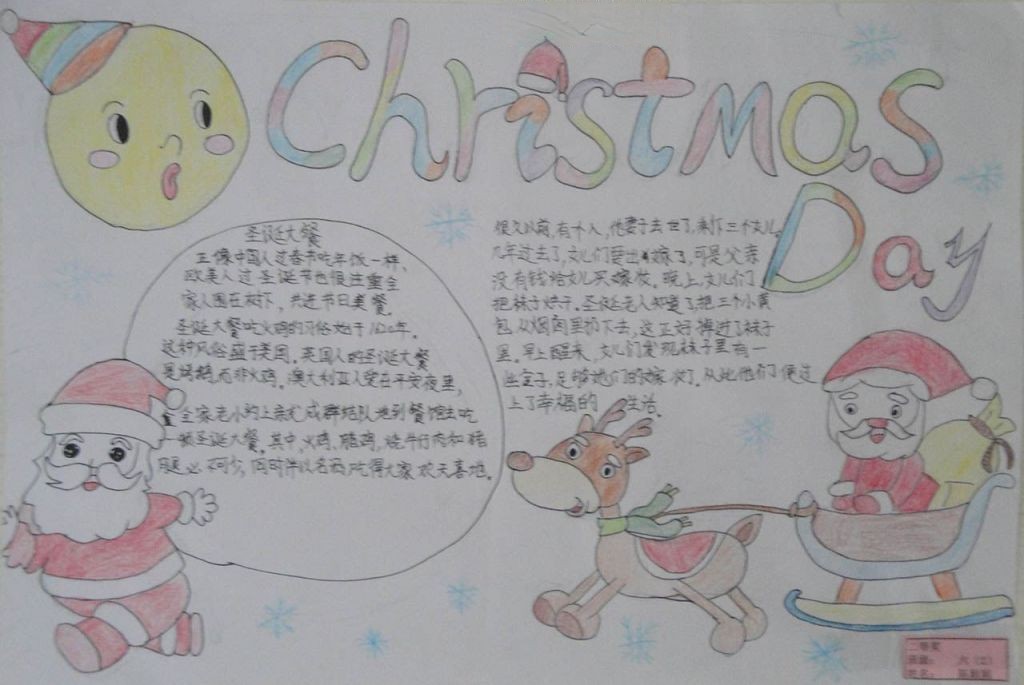 Christmas
Day
圣诞大餐
正像中国人过春节吃年饭一样，
欧美人过圣诞节也很注重全
家人围在树下，共进节日美餐。
圣诞大餐吃火鸡的习俗始于1620年。
这种风俗盛于美国。英国人的圣诞大餐
是烤鹅，而非火鸡。澳大利亚人爱在平安夜里，
全家老小约上亲友成群结队地到餐馆去吃
一顿圣诞大餐，其中，火鸡、腊鸡、烧牛仔肉和猪
腿必不可少，同时伴以名酒，吃得大家欢天喜地。
很久以前，有个人，他妻子去世了，剩下三个女儿。
几年过去了，女儿们要出嫁了，可是父亲
没有钱给女儿买嫁妆。晚上，女儿们
把袜子烘干。圣诞老人知道了，把三个小黄
包从烟囱里扔下去，这正好掉进了袜子
里。早上醒来，女儿们发现袜子里有一
些金子，足够她们的嫁妆了。从此他们便过
上了幸福的 生活。
二等奖
班级： 六（2）
姓名：